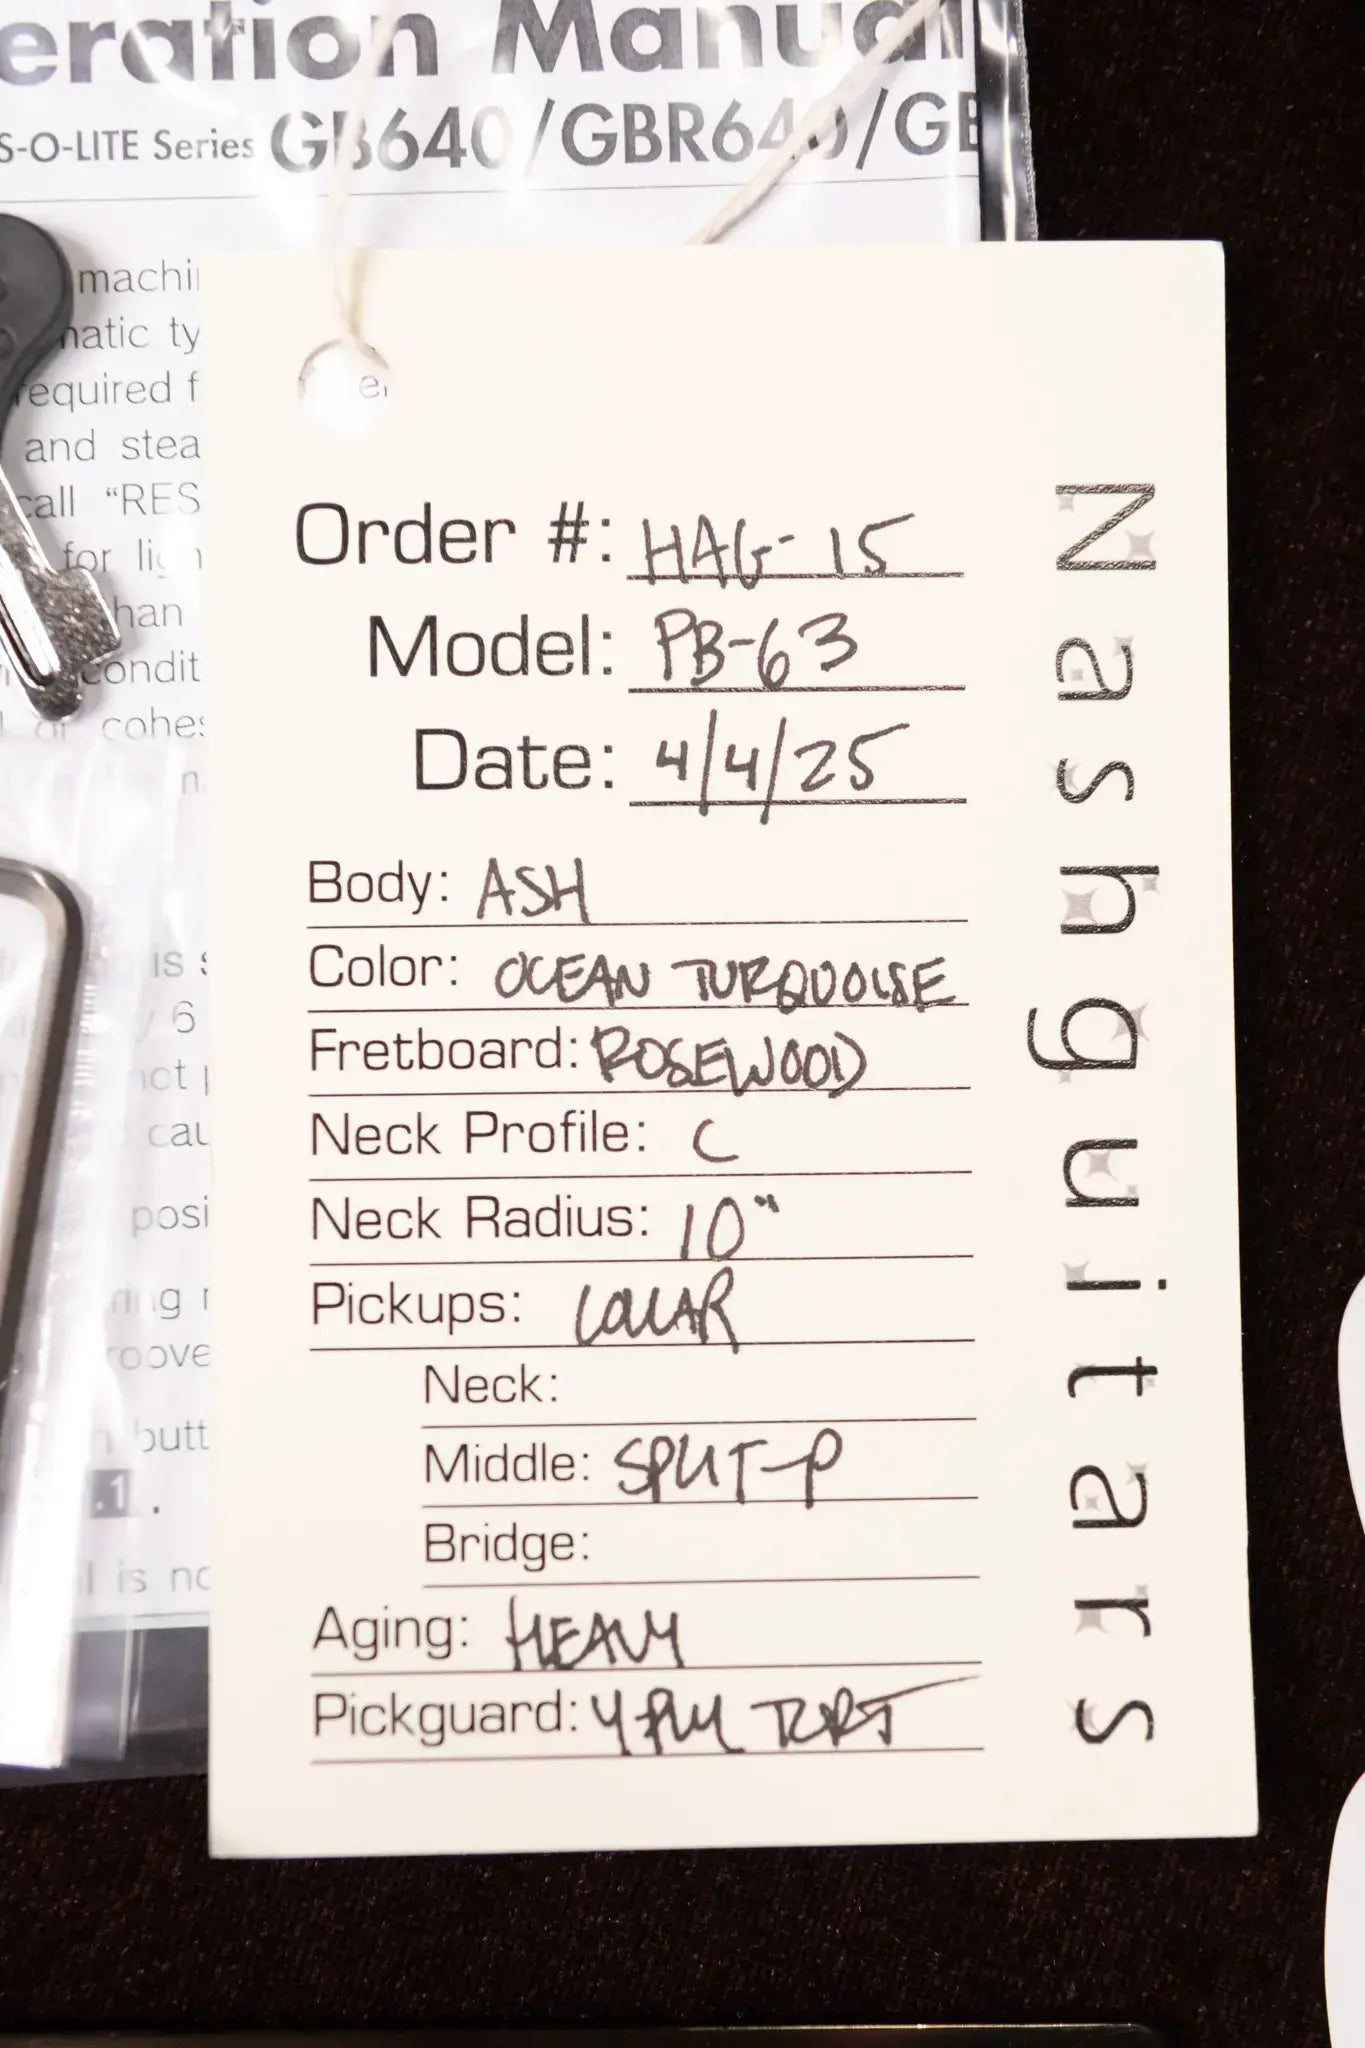 eration Manual
S-O-LITE Series GB640/GBR640/GB
machi
matic ty
required f
and stea
call “RES
for ligh
than
condit
of cohes
is s
6
not p
cau
posi
ring
roove
butt
.1.
l is no
Order #: HAG-15
Model: PB-63
Date: 4/4/25
Body: ASH
Color: OCEAN TURQUOISE
Fretboard: ROSEWOOD
Neck Profile: C
Neck Radius: 10"
Pickups: LOLLAR
Neck:
Middle: SPLIT-P
Bridge:
Aging: HEAVY
Pickguard: 4 PLY TORT
Nashguitars